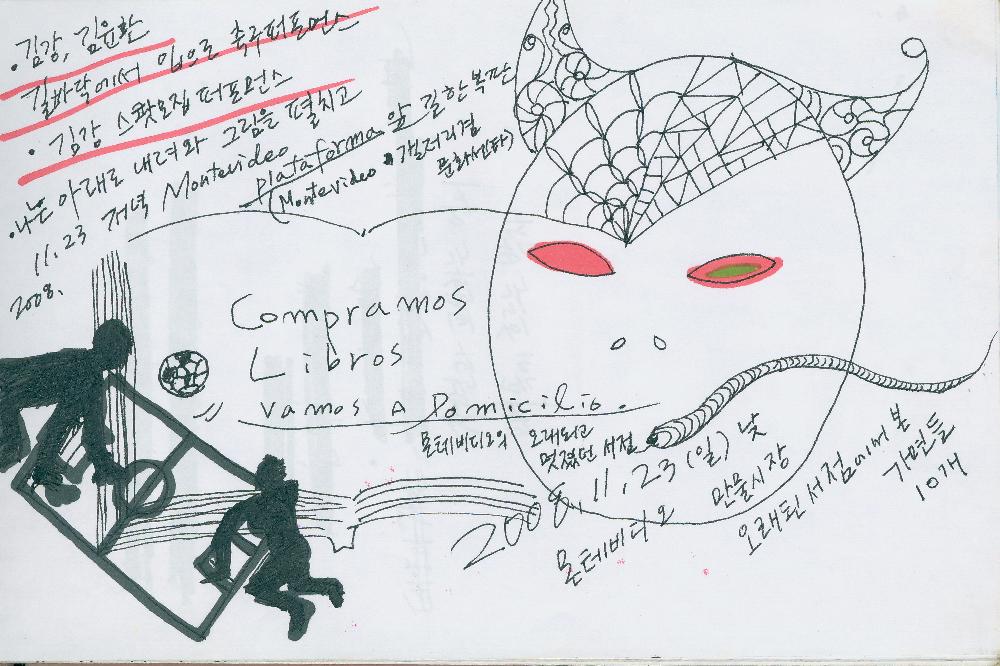 · 김강, 김윤환
길바닥에서 입으로 축구퍼포먼스
· 김강 스팟모집 퍼포먼스
· 나는 아래로 내려와 그림을 펼치고
11. 23 저녁 Montevideo plataforma 앞 길 한복판
2008.
(Montevideo · 갤러리겸
문화센타)
Compramos
Libros
Vamos A Domicilio.
몬테비디오의 오래되고
멋졌던 서점
2008. 11. 23 (일) 낮
몬테비디오 만물시장
오래된 서점에서 본
가면들
10개